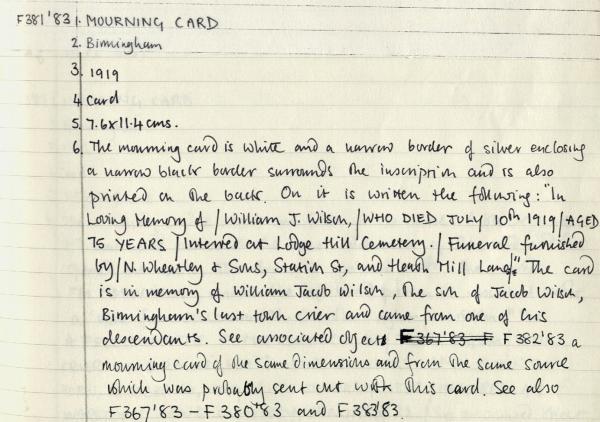 F381'83 1. MOURNING CARD
2. Birmingham
3. 1919
4. Card
5. 7.6x11.4cms.
6. The mourning card is white and a narrow border of silver enclosing
a narrow black border surrounds the inscription and is also
printed on the back. On it is written the following: "In
Loving Memory of / William J. Wilson, / WHO DIED JULY 10th 1919 / AGED
75 YEARS / Interred at Lodge Hill Cemetery. / Funeral furnished
by / N. Wheatley & Sons, Station St, and Heath Mill Lane." The card
is in memory of William Jacob Wilson, the son of Jacob Wilson,
Birmingham's last town crier and came from one of his
descendants. See associated objects F367'83 - F F382'83 a
mourning card of the same dimensions and from the same source
which was probably sent out with this card. See also
F367'83 - F380'83 and F383'83.